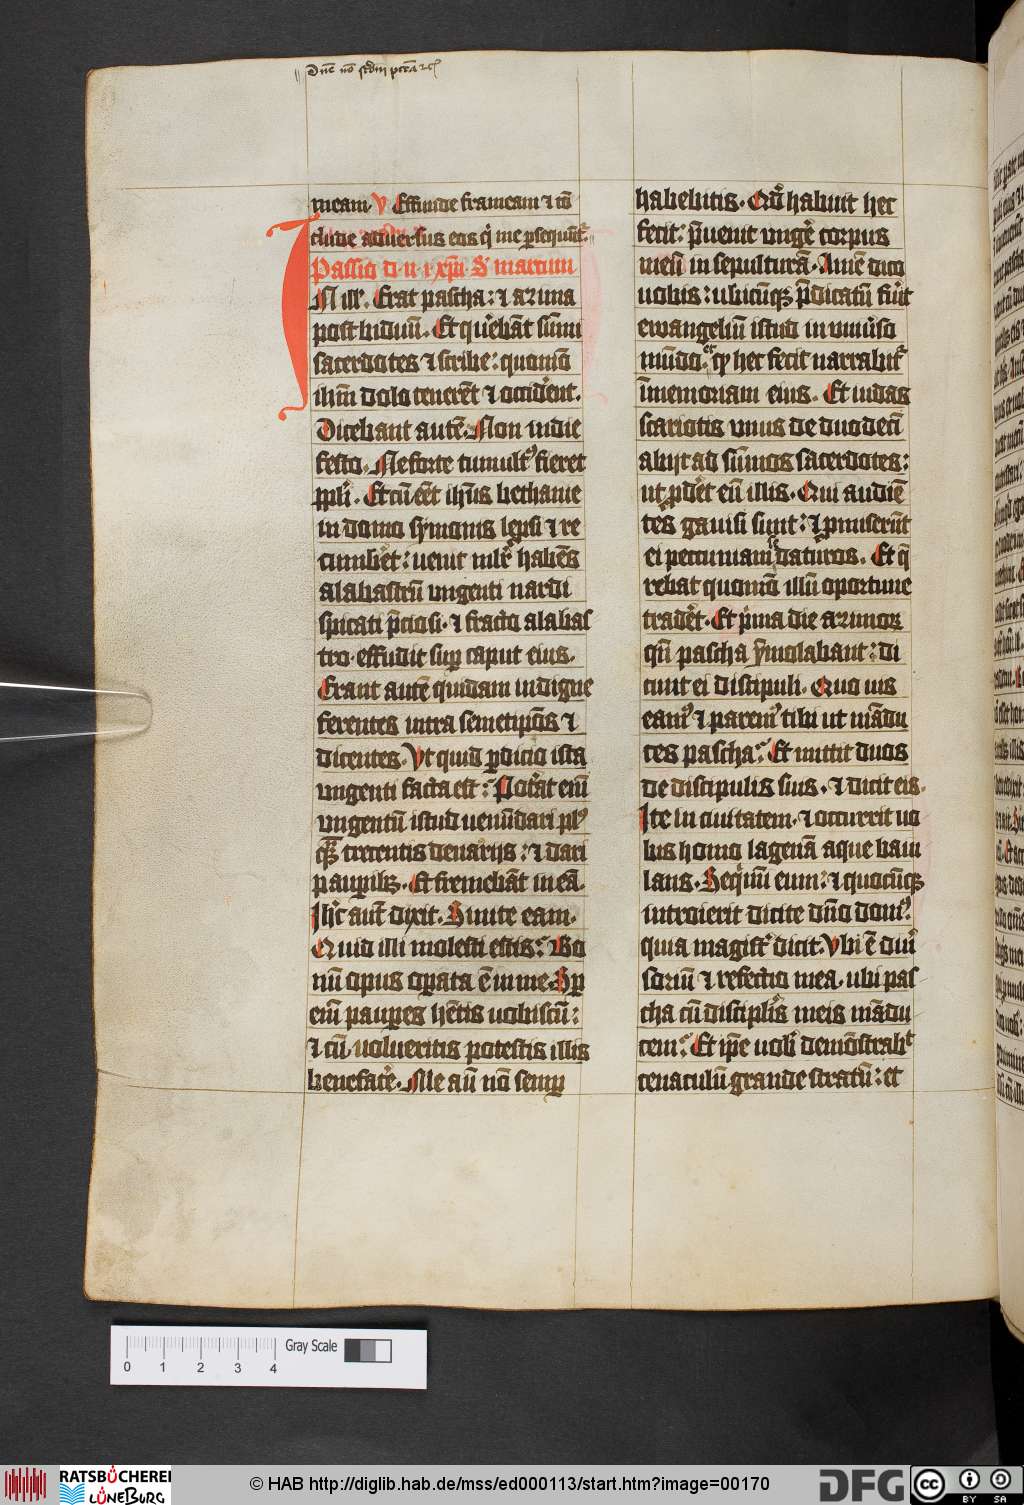 Dne nō scdm pctā
meam. V Effunde frameam ⁊ cō
clude aduersus eos qͥ me psequūt᷑.
Passio d. n. i. xpi. S. marcum
IN ill. Erat pascha: ⁊ azima
post biduū. Et querebāt sūmi
sacerdotes ⁊ scribe: quomō
ihm dolo tenerēt ⁊ occiderent.
Dicebant autē. Non in die
festo. Ne forte tumultꝰ fieret
ppli. Et cū eēt ihus bethanie
in domo symonis leprosi ⁊ re
cumberet: uenit mlr habēs
alabastrū ungenti nardi
spicati p̄ciosi. ⁊ fracto alabas
tro. effudit sup caput eius.
Erant autē quidam indigne
ferentes intra semetipōs ⁊
dicentes. Vt quid pdicio ista
ungenti facta est: Poterat enī
ungentū istud uenūdari plꝰ
qͣ trecentis denarijs: ⁊ dari
paupibꝫ. Et fremebāt in eā.
Ihc aut dixit. Sinite eam.
Quid illi molesti estis: Bo
nū opus opata ē in me. Sp
enī paupes hētis uobiscū:
⁊ cū uolueritis potestis illis
benefacere. Me aū nō semp
habebitis. Qd habuit hec
fecit: p̄uenit ungere corpus
meū in sepulturā. Amē dico
uobis: ubicūqꝫ p̄dicatū fuit
ewangeliū istud in uniuso
mūdo: et qd hec fecit narrabit᷑
ī memoriam eius. Et iudas
scariotis unus de duodecī
abijt ad sūmos sacerdotes:
ut pderet eū illis. Qui audiē
tes gauisi sunt: ⁊ pmiserūt
ei peccuniam se daturos. Et q̄
rebat quomō illū oportune
traderet. Et pͥma die azimoꝝ
qn̄ pascha ymolabant: di
cunt ei discipuli. Quo uis
eamꝰ ⁊ paremꝰ tibi ut mādu
ces pascha: Et mittit duos
de discipulis suis. ⁊ dicit eis.
Ite in ciuitatem. ⁊ occurrit uo
bis homo lagenā aque baiu
lans. Sequimī eum: ⁊ quocūqꝫ
introierit dicite dno domꝰ.
quia magist᷑ dicit. Vbi ē diuͥ
soriū ⁊ refectio mea. ubi pas
cha cū disciplis meis mādu
cem: Et ipe uob demōstrabͭ
cenaculū grande stratū: et
0 1 2 3 4
Gray Scale
RATSBÜCHEREI
LÜNEBURG
© HAB http://diglib.hab.de/mss/ed000113/start.htm?image=00170
DFG
cc BY SA